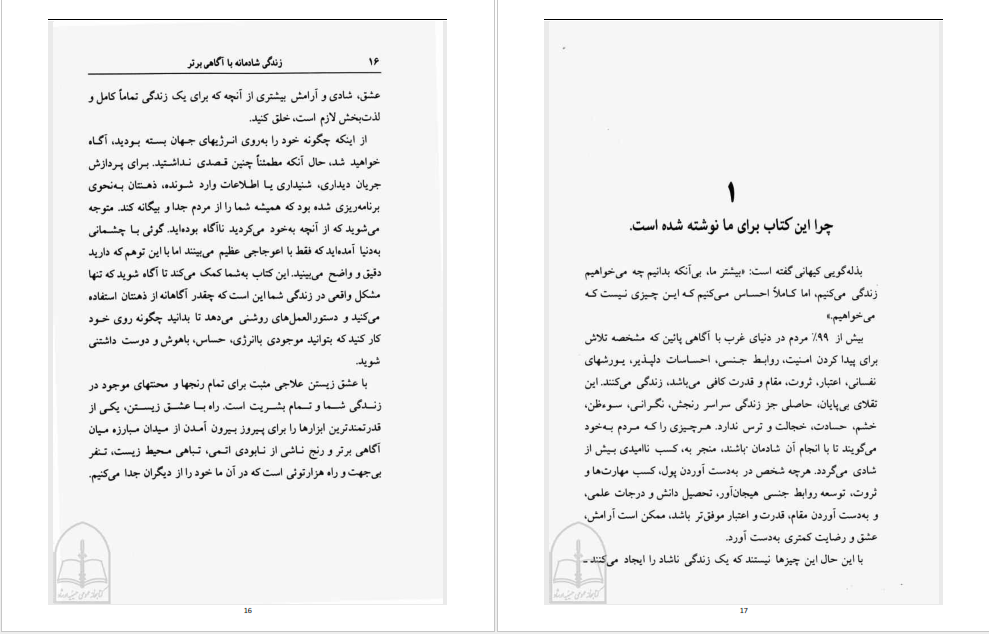 ۱۶
زندگی شادمانه با آگاهی برتر
عشق، شادی و آرامش بیشتری از آنچه که برای یک زندگی تماماً کامل و
لذت‌بخش لازم است، خلق کنید.
از اینکه چگونه خود را به‌روی انرژیهای جهان بسته بودید، آگاه
خواهید شد، حال آنکه مطمئناً چنین قصدی نداشتید. برای پردازش
جریان دیداری، شنیداری یا اطلاعات وارد شونده، ذهنتان به‌نحوی
برنامه‌ریزی شده بود که همیشه شما را از مردم جدا و بیگانه کند. متوجه
می‌شوید که از آنچه به‌خود می‌کردید ناآگاه بوده‌اید. گوئی با چشمانی
به‌دنیا آمده‌اید که فقط با اعوجاجی عظیم می‌بینند اما با این توهم که دارید
دقیق و واضح می‌بینید. این کتاب به‌شما کمک می‌کند تا آگاه شوید که تنها
مشکل واقعی در زندگی شما این است که چقدر آگاهانه از ذهنتان استفاده
می‌کنید و دستورالعمل‌های روشنی می‌دهد تا بدانید چگونه روی خود
کار کنید که بتوانید موجودی باانرژی، حساس، باهوش و دوست داشتنی
شوید.
با عشق زیستن علاجی مثبت برای تمام رنجها و محنتهای موجود در
زندگی شما و تمام بشریت است. راه با عشق زیستن، یکی از
قدرتمندترین ابزارها را برای پیروز بیرون آمدن از میدان مبارزه میان
آگاهی برتر و رنج ناشی از نابودی اتمی، تباهی محیط زیست، تنفر
بی‌جهت و راه هزارتوئی است که در آن ما خود را از دیگران جدا می‌کنیم.
16
۱
چرا این کتاب برای ما نوشته شده است.
بذله‌گویی کیهانی گفته است: «بیشتر ما، بی‌آنکه بدانیم چه می‌خواهیم
زندگی می‌کنیم، اما کاملاً احساس می‌کنیم که این چیزی نیست که
می‌خواهیم.»
بیش از ۹۹٪ مردم در دنیای غرب با آگاهی پائین که مشخصه تلاش
برای پیدا کردن امنیت، روابط جنسی، احساسات دلپذیر، یورشهای
نفسانی، اعتبار، ثروت، مقام و قدرت کافی می‌باشد، زندگی می‌کنند. این
تقلای بی‌پایان، حاصلی جز زندگی سراسر رنجش، نگرانی، سوءظن،
خشم، حسادت، خجالت و ترس ندارد. هرچیزی را که مردم به‌خود
می‌گویند تا با انجام آن شادمان باشند، منجر به، کسب ناامیدی بیش از
شادی می‌گردد. هرچه شخص در به‌دست آوردن پول، کسب مهارت‌ها و
ثروت، توسعه روابط جنسی هیجان‌آور، تحصیل دانش و درجات علمی،
و به‌دست آوردن مقام، قدرت و اعتبار موفق‌تر باشد، ممکن است آرامش،
عشق و رضایت کمتری به‌دست آورد.
با این حال این چیزها نیستند که یک زندگی ناشاد را ایجاد می‌کنند ــ
17